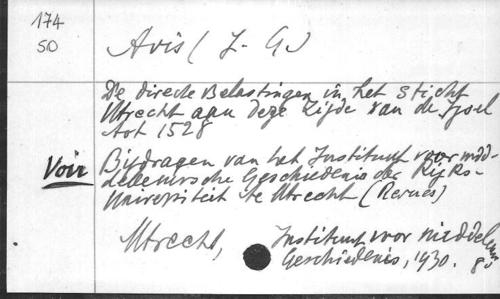 174
50
Avis (J. G.)
De directe Belastingen in het Sticht
Utrecht aan deze zijde van de Ijsel
tot 1528
Voir Bijdragen van het Instituut voor mid-
deleeuwsche Geschiedenis der Rijks-
Universiteit te Utrecht (Revues)
Utrecht, Instituut voor middeleeuw
Geschiedenis, 1930. 8º